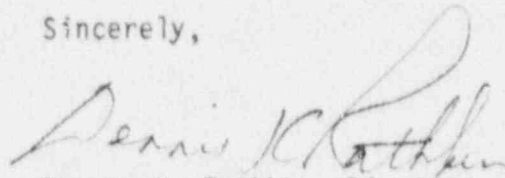 Sincerely,
Dennis K Rathbun